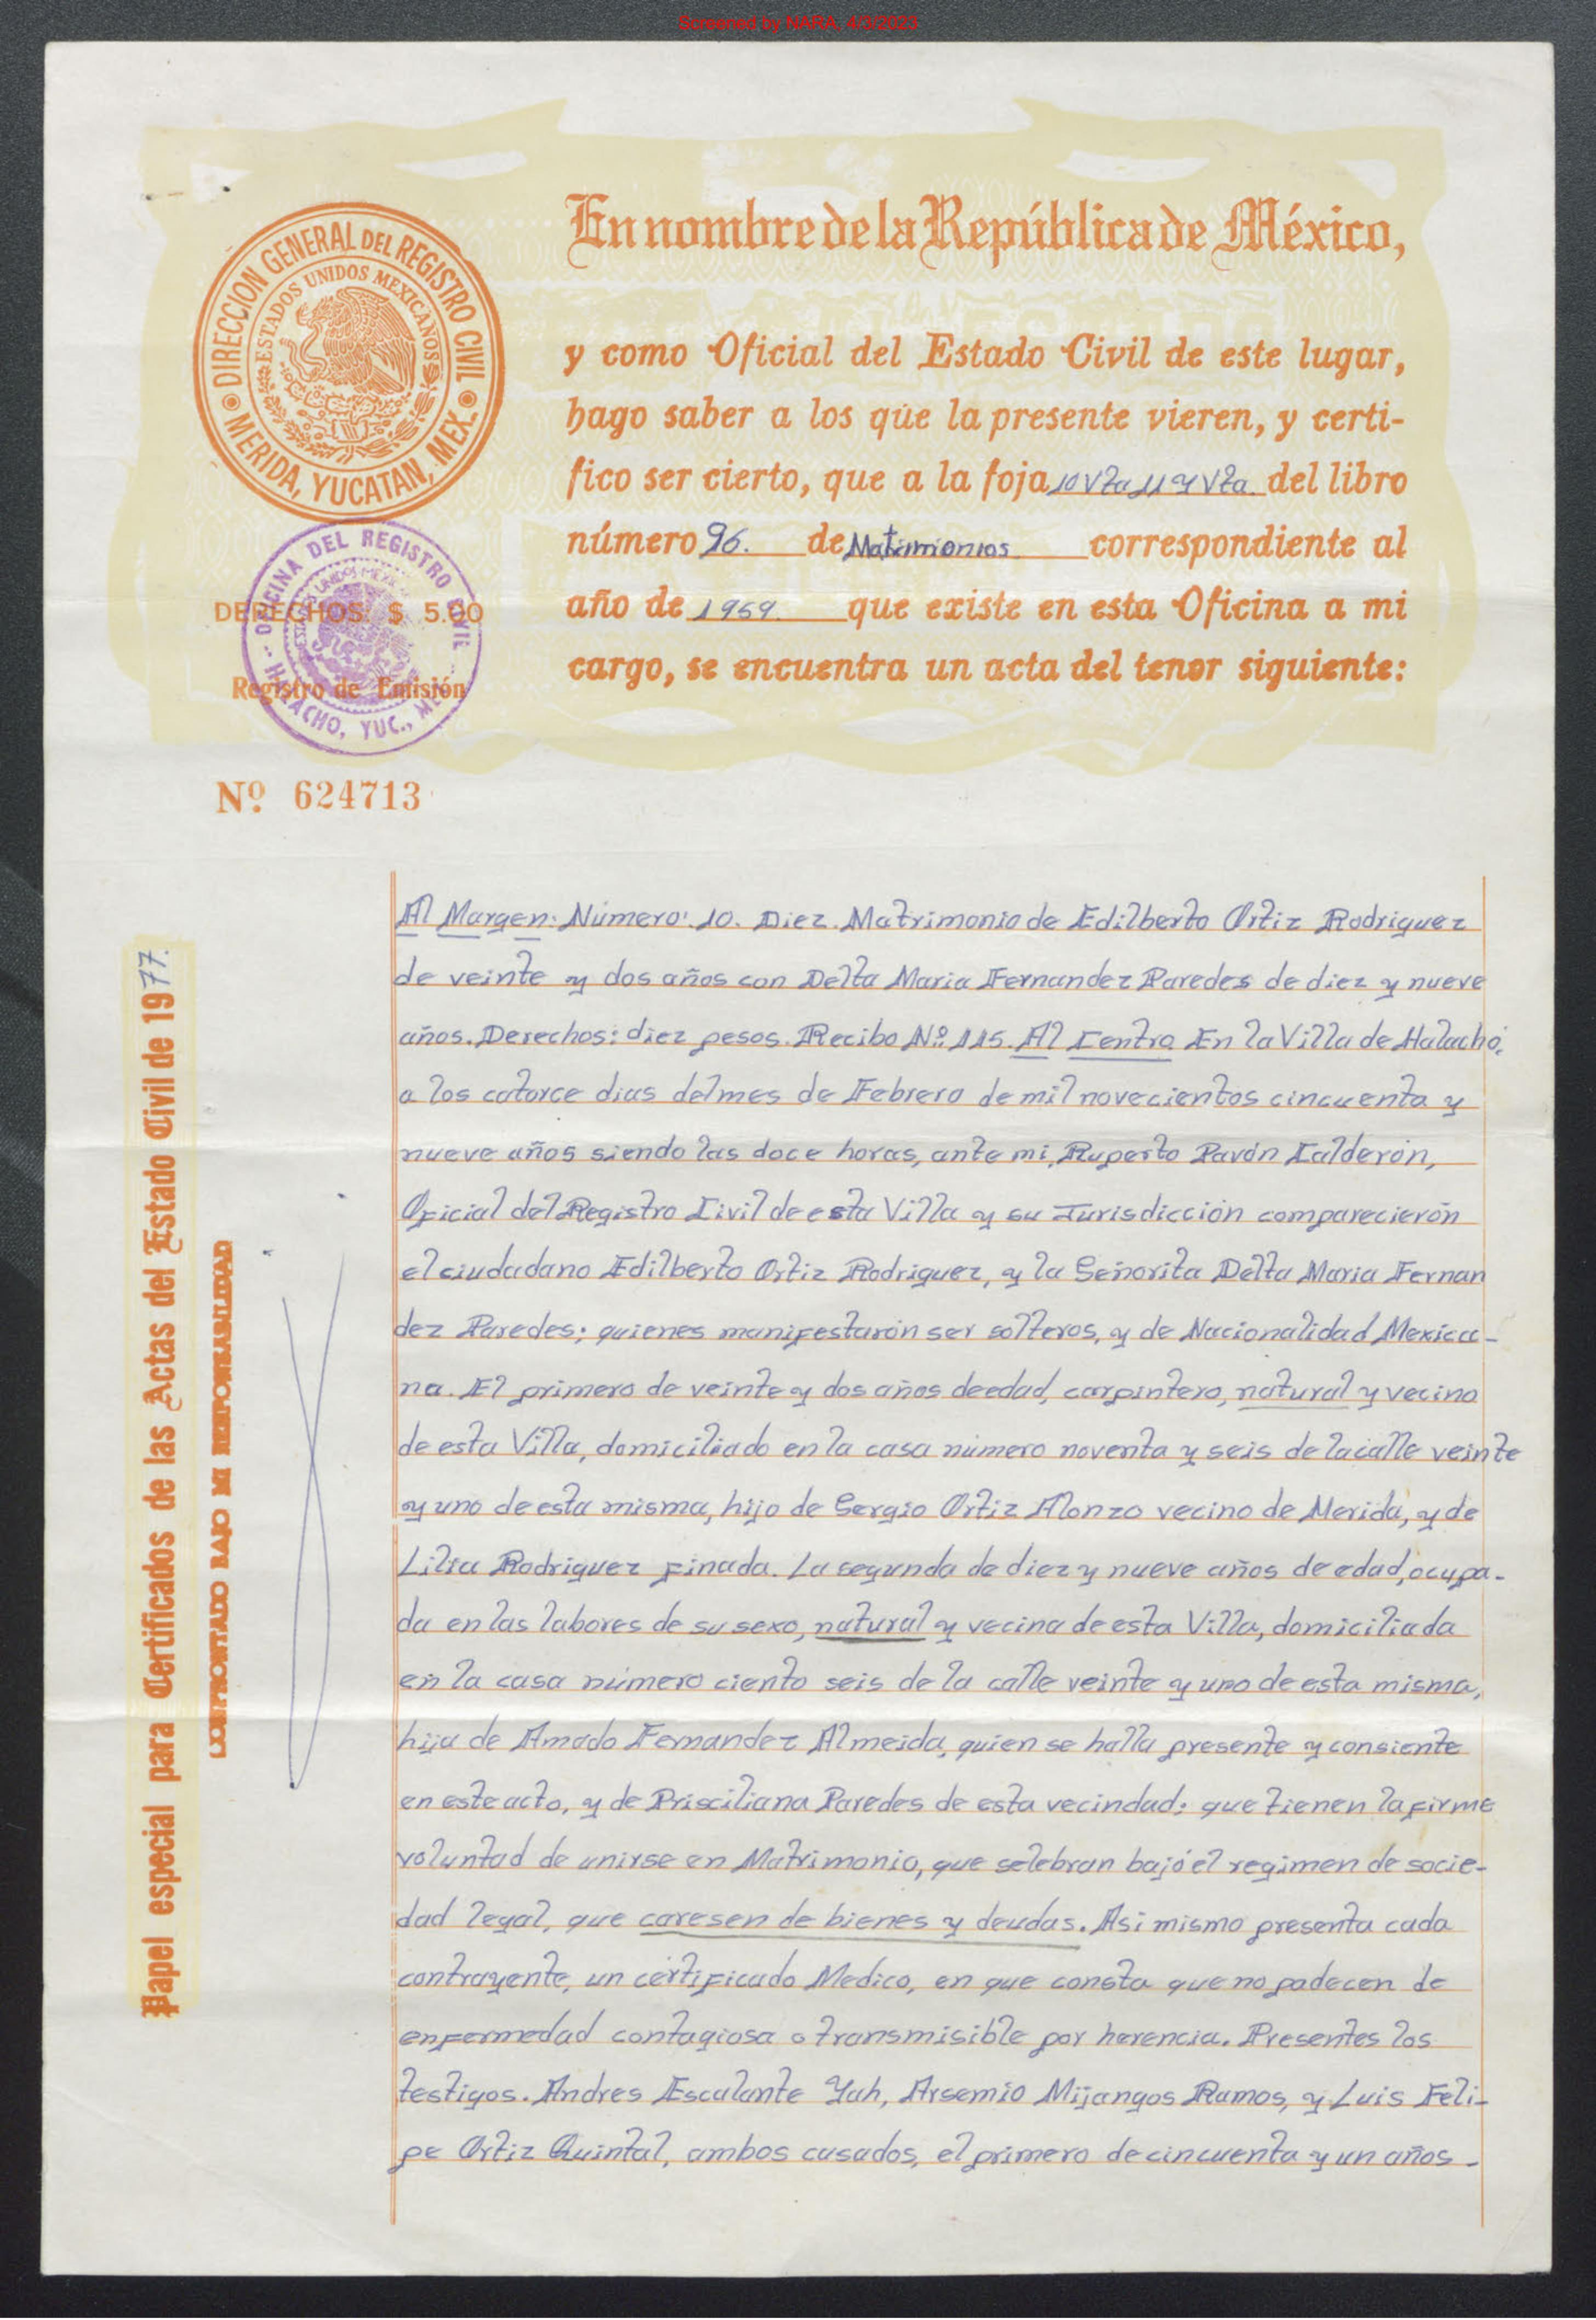 Screened by NARA, 4/3/2023
En nombre de la República de México,
y como Oficial del Estado Civil de este lugar,
hago saber a los que la presente vieren, y certi-
fico ser cierto, que a la foja 10 Vta 11 y Vta. del libro
número 96. de Matrimonios correspondiente al
año de 1959. que existe en esta Oficina a mi
cargo, se encuentra un acta del tenor siguiente:
DIRECCION GENERAL DEL REGISTRO CIVIL
MERIDA, YUCATAN, MEX.
ESTADOS UNIDOS MEXICANOS
OFICINA DEL REGISTRO CIVIL
HALACHO, YUC., MEX.
DERECHOS: $ 5.00
Registro de Emisión
Nº 624713
Papel especial para Certificados de las Actas del Estado Civil de 1977.
CONFRONTADO BAJO MI RESPONSABILIDAD
Al Margen: Número: 10. Diez. Matrimonio de Edilberto Ortiz Rodriguez
de veinte y dos años con Delta Maria Fernandez Paredes de diez y nueve
años. Derechos: diez pesos. Recibo Nº 115. Al Centro En la Villa de Halachó,
a los catorce dias del mes de Febrero de mil novecientos cincuenta y
nueve años siendo las doce horas, ante mi, Ruperto Pavón Calderón,
Oficial del Registro Civil de esta Villa y su Jurisdicción comparecierón
el ciudadano Edilberto Ortiz Rodriguez, y la Señorita Delta Maria Fernan
dez Paredes; quienes manifestarón ser solteros, y de Nacionalidad Mexica-
na. El primero de veinte y dos años de edad, carpintero, natural y vecino
de esta Villa, domiciliado en la casa número noventa y seis de la calle veinte
y uno de esta misma, hijo de Sergio Ortiz Alonzo vecino de Merida, y de
Lilia Rodriguez finada. La segunda de diez y nueve años de edad, ocupa-
da en las labores de su sexo, natural y vecina de esta Villa, domiciliada
en la casa número ciento seis de la calle veinte y uno de esta misma,
hija de Amado Fernandez Almeida, quien se halla presente y consiente
en este acto, y de Prisciliana Paredes de esta vecindad; que tienen la firme
voluntad de unirse en Matrimonio, que selebran bajó el regimen de socie-
dad legal, que caresen de bienes y deudas. Asi mismo presenta cada
contrayente, un certificado Medico, en que consta que no padecen de
enfermedad contagiosa o transmisible por herencia. Presentes los
testigos. Andres Escalante Yah, Arsemio Mijangos Ramos, y Luis Feli-
pe Ortiz Quintal, ambos casados, el primero de cincuenta y un años -